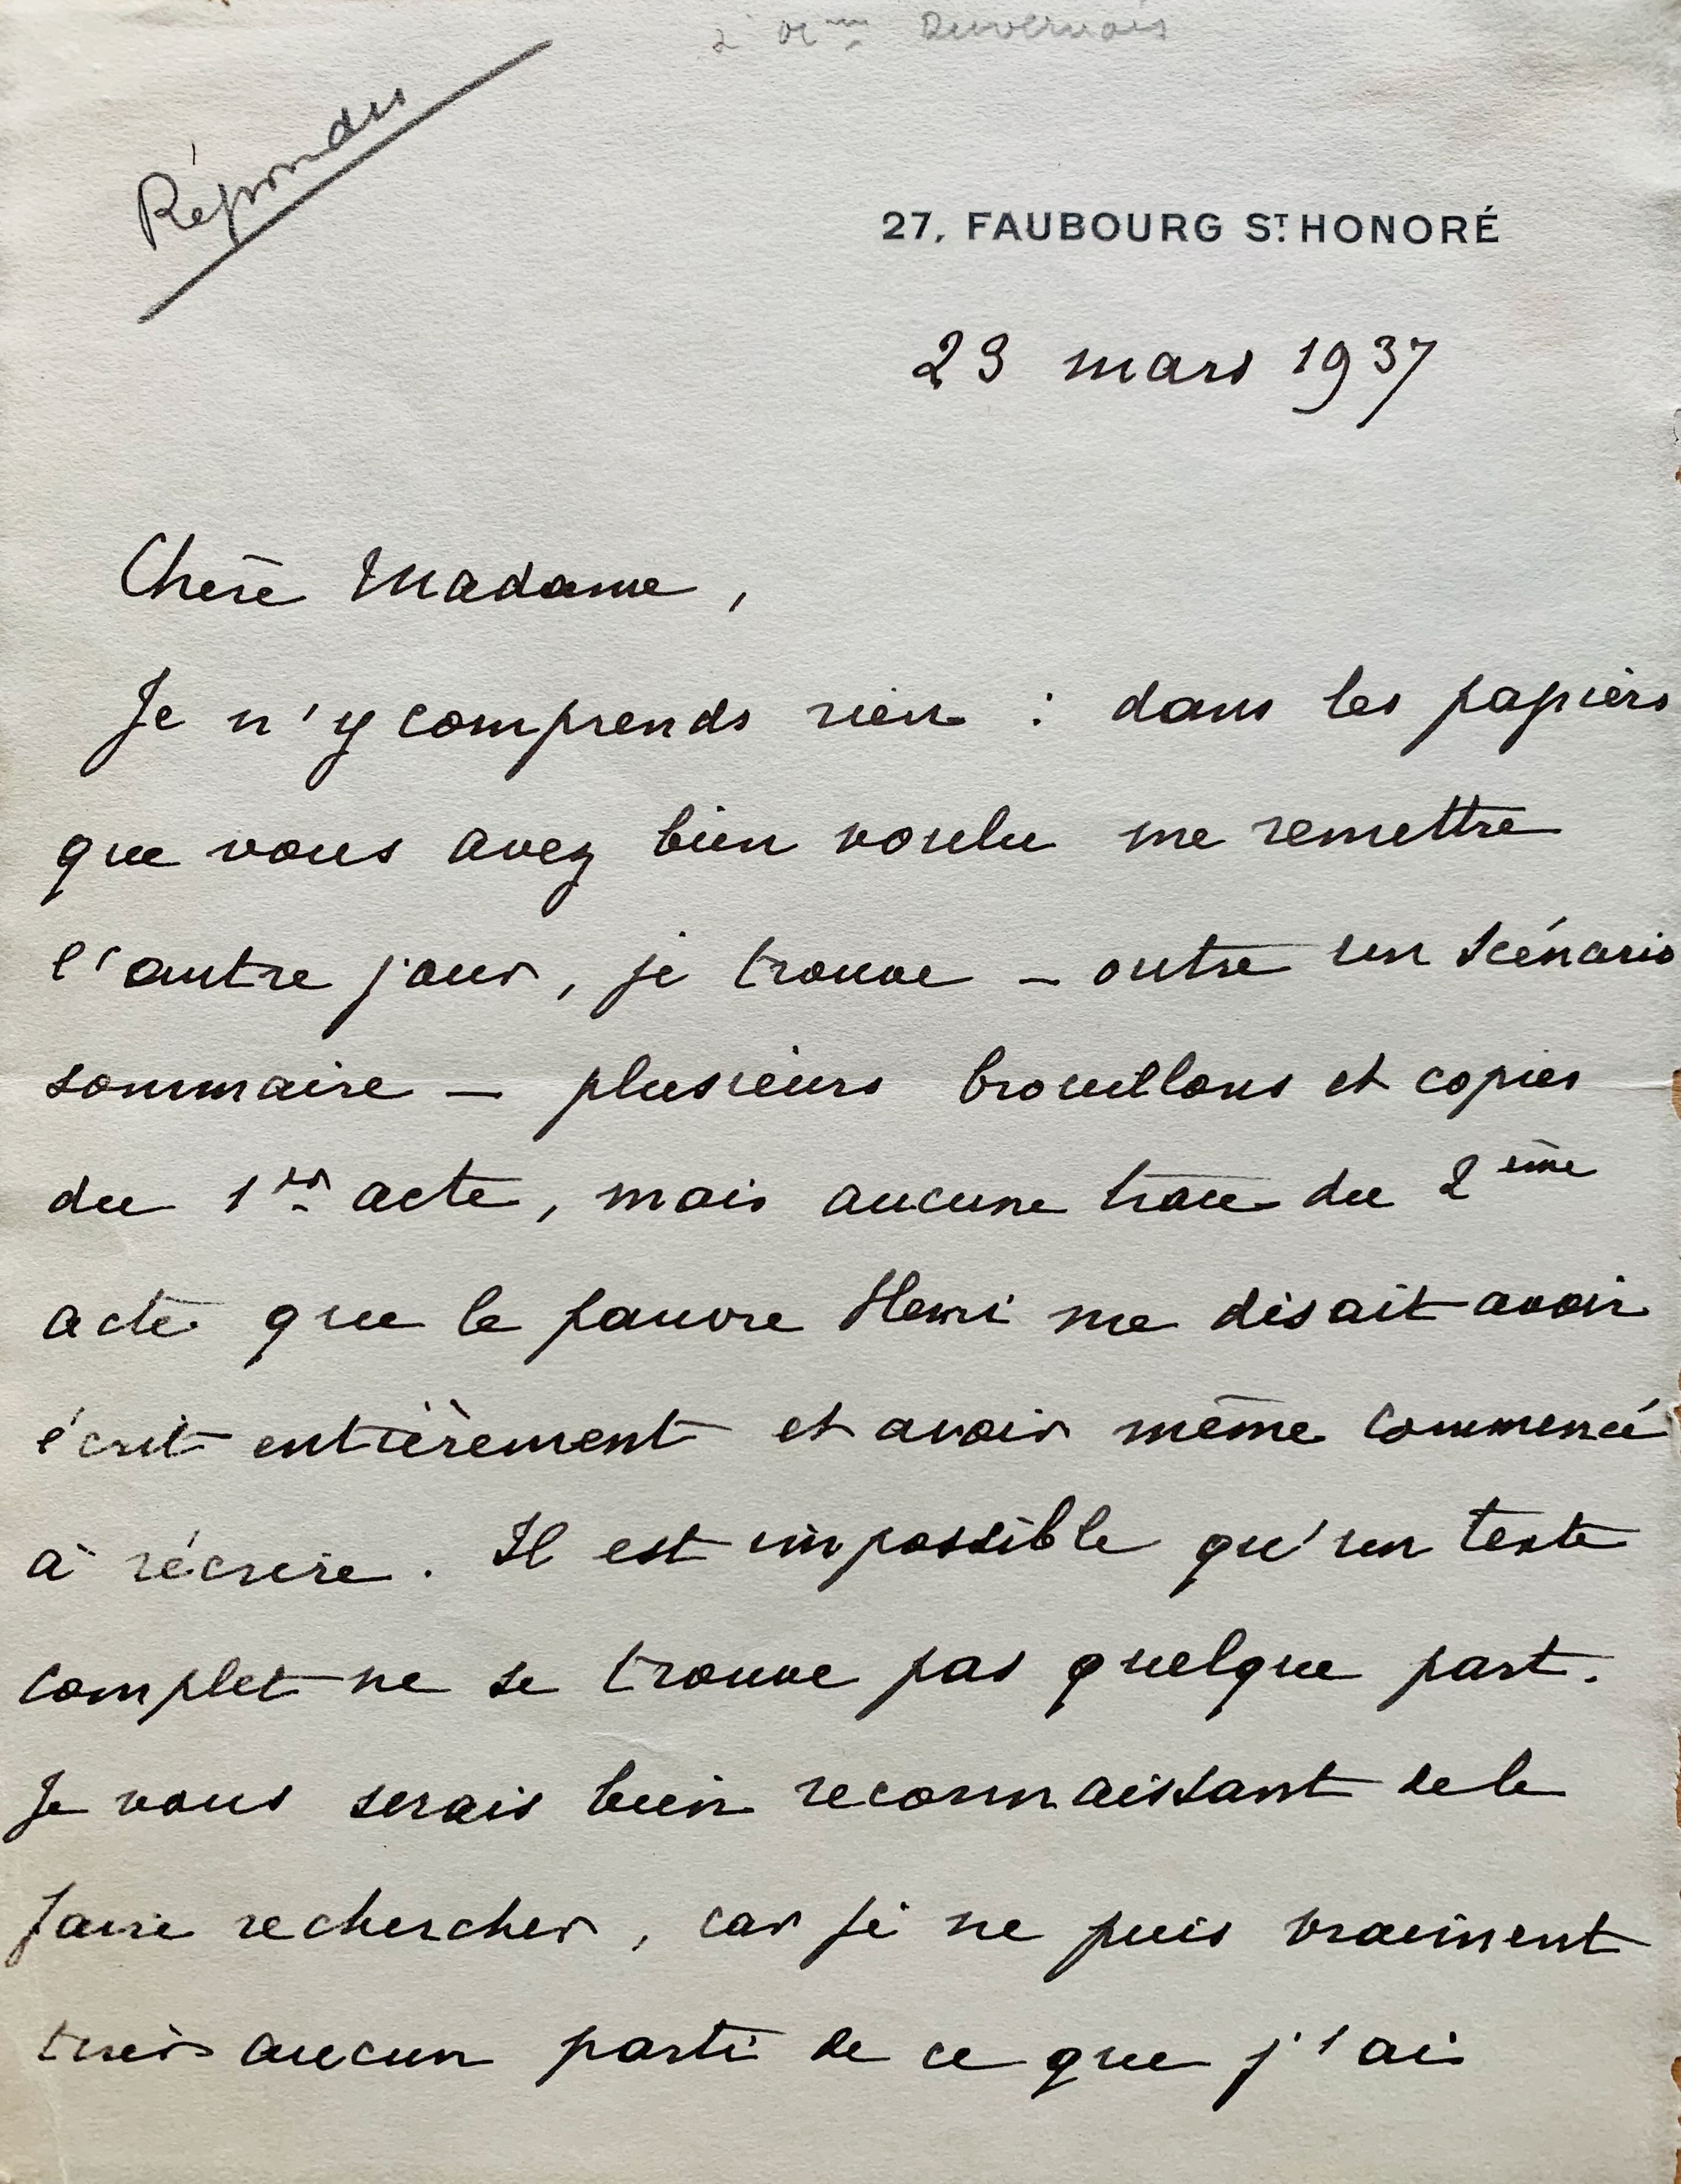 à Mme Duvernois
Répondu
27, FAUBOURG ST HONORÉ
23 mars 1937
Chère Madame,
Je n'y comprends rien : dans les papiers
que vous avez bien voulu me remettre
l'autre jour, je trouve – outre un scénario
sommaire – plusieurs brouillons et copies
du 1er acte, mais aucune trace du 2ème
acte que le pauvre Henri me disait avoir
écrit entièrement et avoir même commencé
à récrire. Il est impossible qu'un texte
complet ne se trouve pas quelque part.
Je vous serais bien reconnaissant de le
faire rechercher, car je ne puis vraiment
tirer aucun parti de ce que j'ai